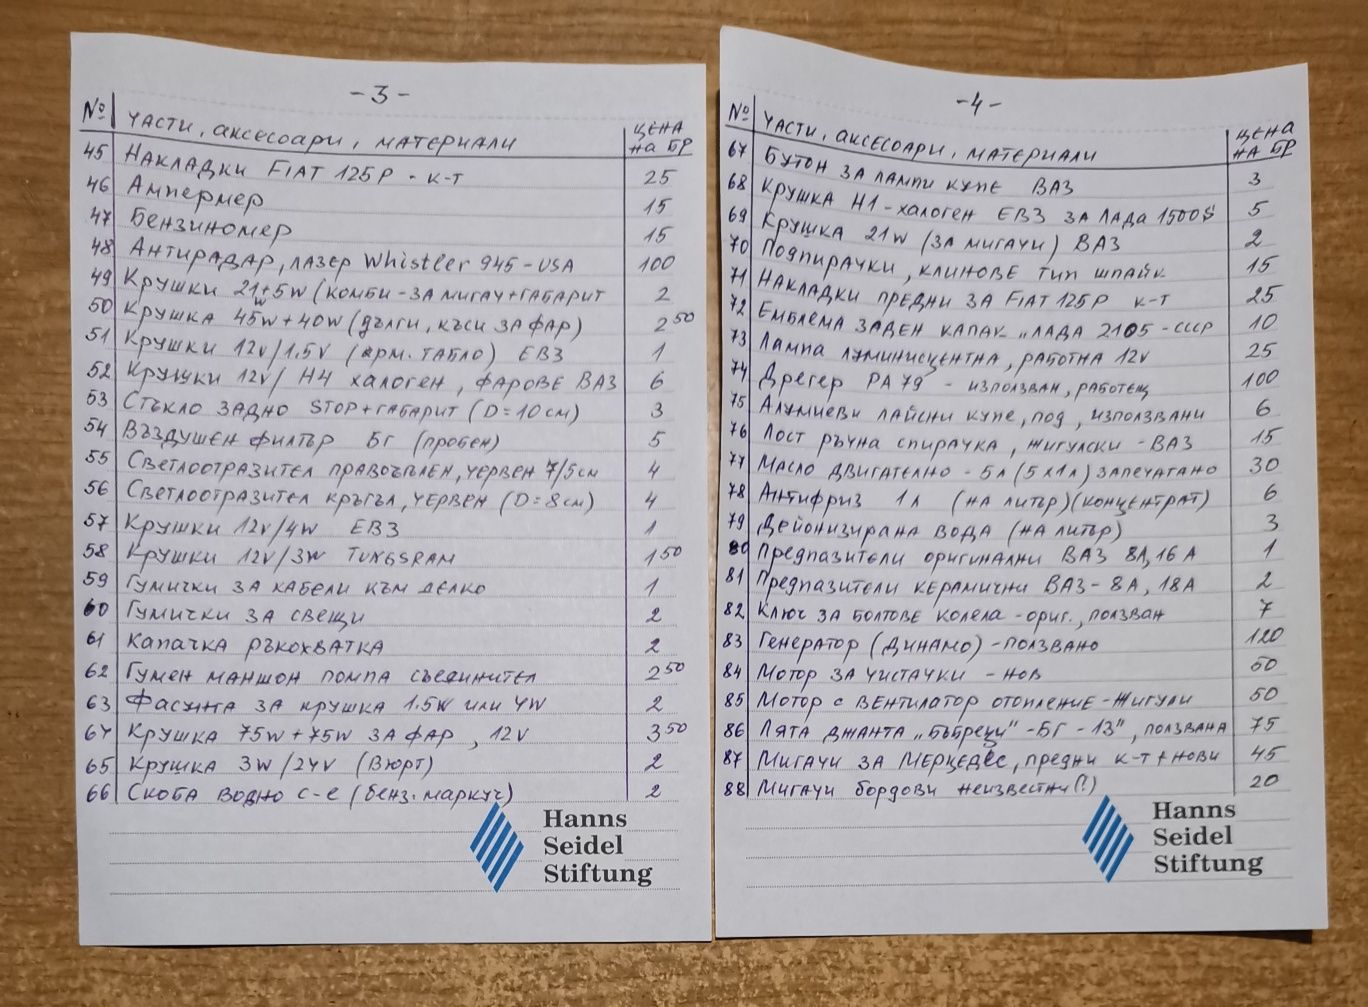 -3-
№ ЧАСТИ, АКСЕСОАРИ, МАТЕРИАЛИ ЦЕНА НА БР
45 НАКЛАДКИ FIAT 125P - К-Т 25
46 Амперметр 15
47 Бензиномер 15
48 АНТИРАДАР, ЛАЗЕР Whistler 945-USA 100
49 Крушки 21+5W (КОМБИ-ЗА МИГАЧ+ГАБАРИТ 2
50 Крушка 45W+40W (дълги, къси ЗА ФАР) 2 50
51 Крушки 12V/1.5V (арм. ТАБЛО) ЕВЗ 1
52 Крушки 12V/ H4 халоген, ФАРОВЕ ВАЗ 6
53 Стъкло ЗАДНО STOP+ГАБАРИТ (D=10см) 3
54 Въздушен филтър БГ (пробен) 5
55 Светлоотразител правоъглен, червен 7/5см 4
56 Светлоотразител кръгъл, червен (D=8см) 4
57 Крушки 12V/4W ЕВЗ 1
58 Крушки 12V/3W TUNGSRAM 1 50
59 Гумички ЗА КАБЕЛИ КЪМ ДЕЛКО 1
60 Гумички ЗА СВЕЩИ 2
61 Капачка РЪКОХВАТКА 2
62 Гумен маншон помпа съединител 2 50
63 Фасунга ЗА крушка 1.5W или 4W 2
64 Крушка 75W+75W ЗА ФАР, 12V 3 50
65 Крушка 3W/24V (Вюрт) 2
66 Скоба водно с-е (бенз. маркуч) 2
Hanns
Seidel
Stiftung
-4-
№ ЧАСТИ, АКСЕСОАРИ, МАТЕРИАЛИ ЦЕНА НА БР
67 БУТОН ЗА ЛАМПИ КУПЕ ВАЗ 3
68 Крушка H1-халоген ЕВЗ ЗА ЛАДА 1500S 5
69 Крушка 21W (ЗА МИГАЧИ) ВАЗ 2
70 Подпирачки, клинове тип шпайк 15
71 Накладки предни ЗА FIAT 125P К-Т 25
72 Емблема ЗАДЕН КАПАК „ЛАДА 2105-СССР 10
73 Лампа луминисцентна, работна 12V 25
74 Дрегер PA 79 - използван, работещ 100
75 Алумиеви лайсни купе, под, използвани 6
76 Лост ръчна спирачка, жигулски - ВАЗ 15
77 Масло двигателно - 5л (5x1л) запечатано 30
78 Антифриз 1л (на литър) (концентрат) 6
79 Дейонизирана вода (на литър) 3
80 Предпазители оригинални ВАЗ 8А, 16 А 1
81 Предпазители керамични ВАЗ - 8А, 18А 2
82 Ключ за болтове колела - ориг., ползван 7
83 Генератор (динамо) - ползвано 120
84 Мотор за чистачки - нов 50
85 Мотор с вентилатор отопление - Жигули 50
86 Лята джанта „Бъбреци" - БГ - 13", ползвана 75
87 Мигачи за Мерцедес, предни к-т + нови 45
88 Мигачи бордови неизвестни (!) 20
Hanns
Seidel
Stiftung